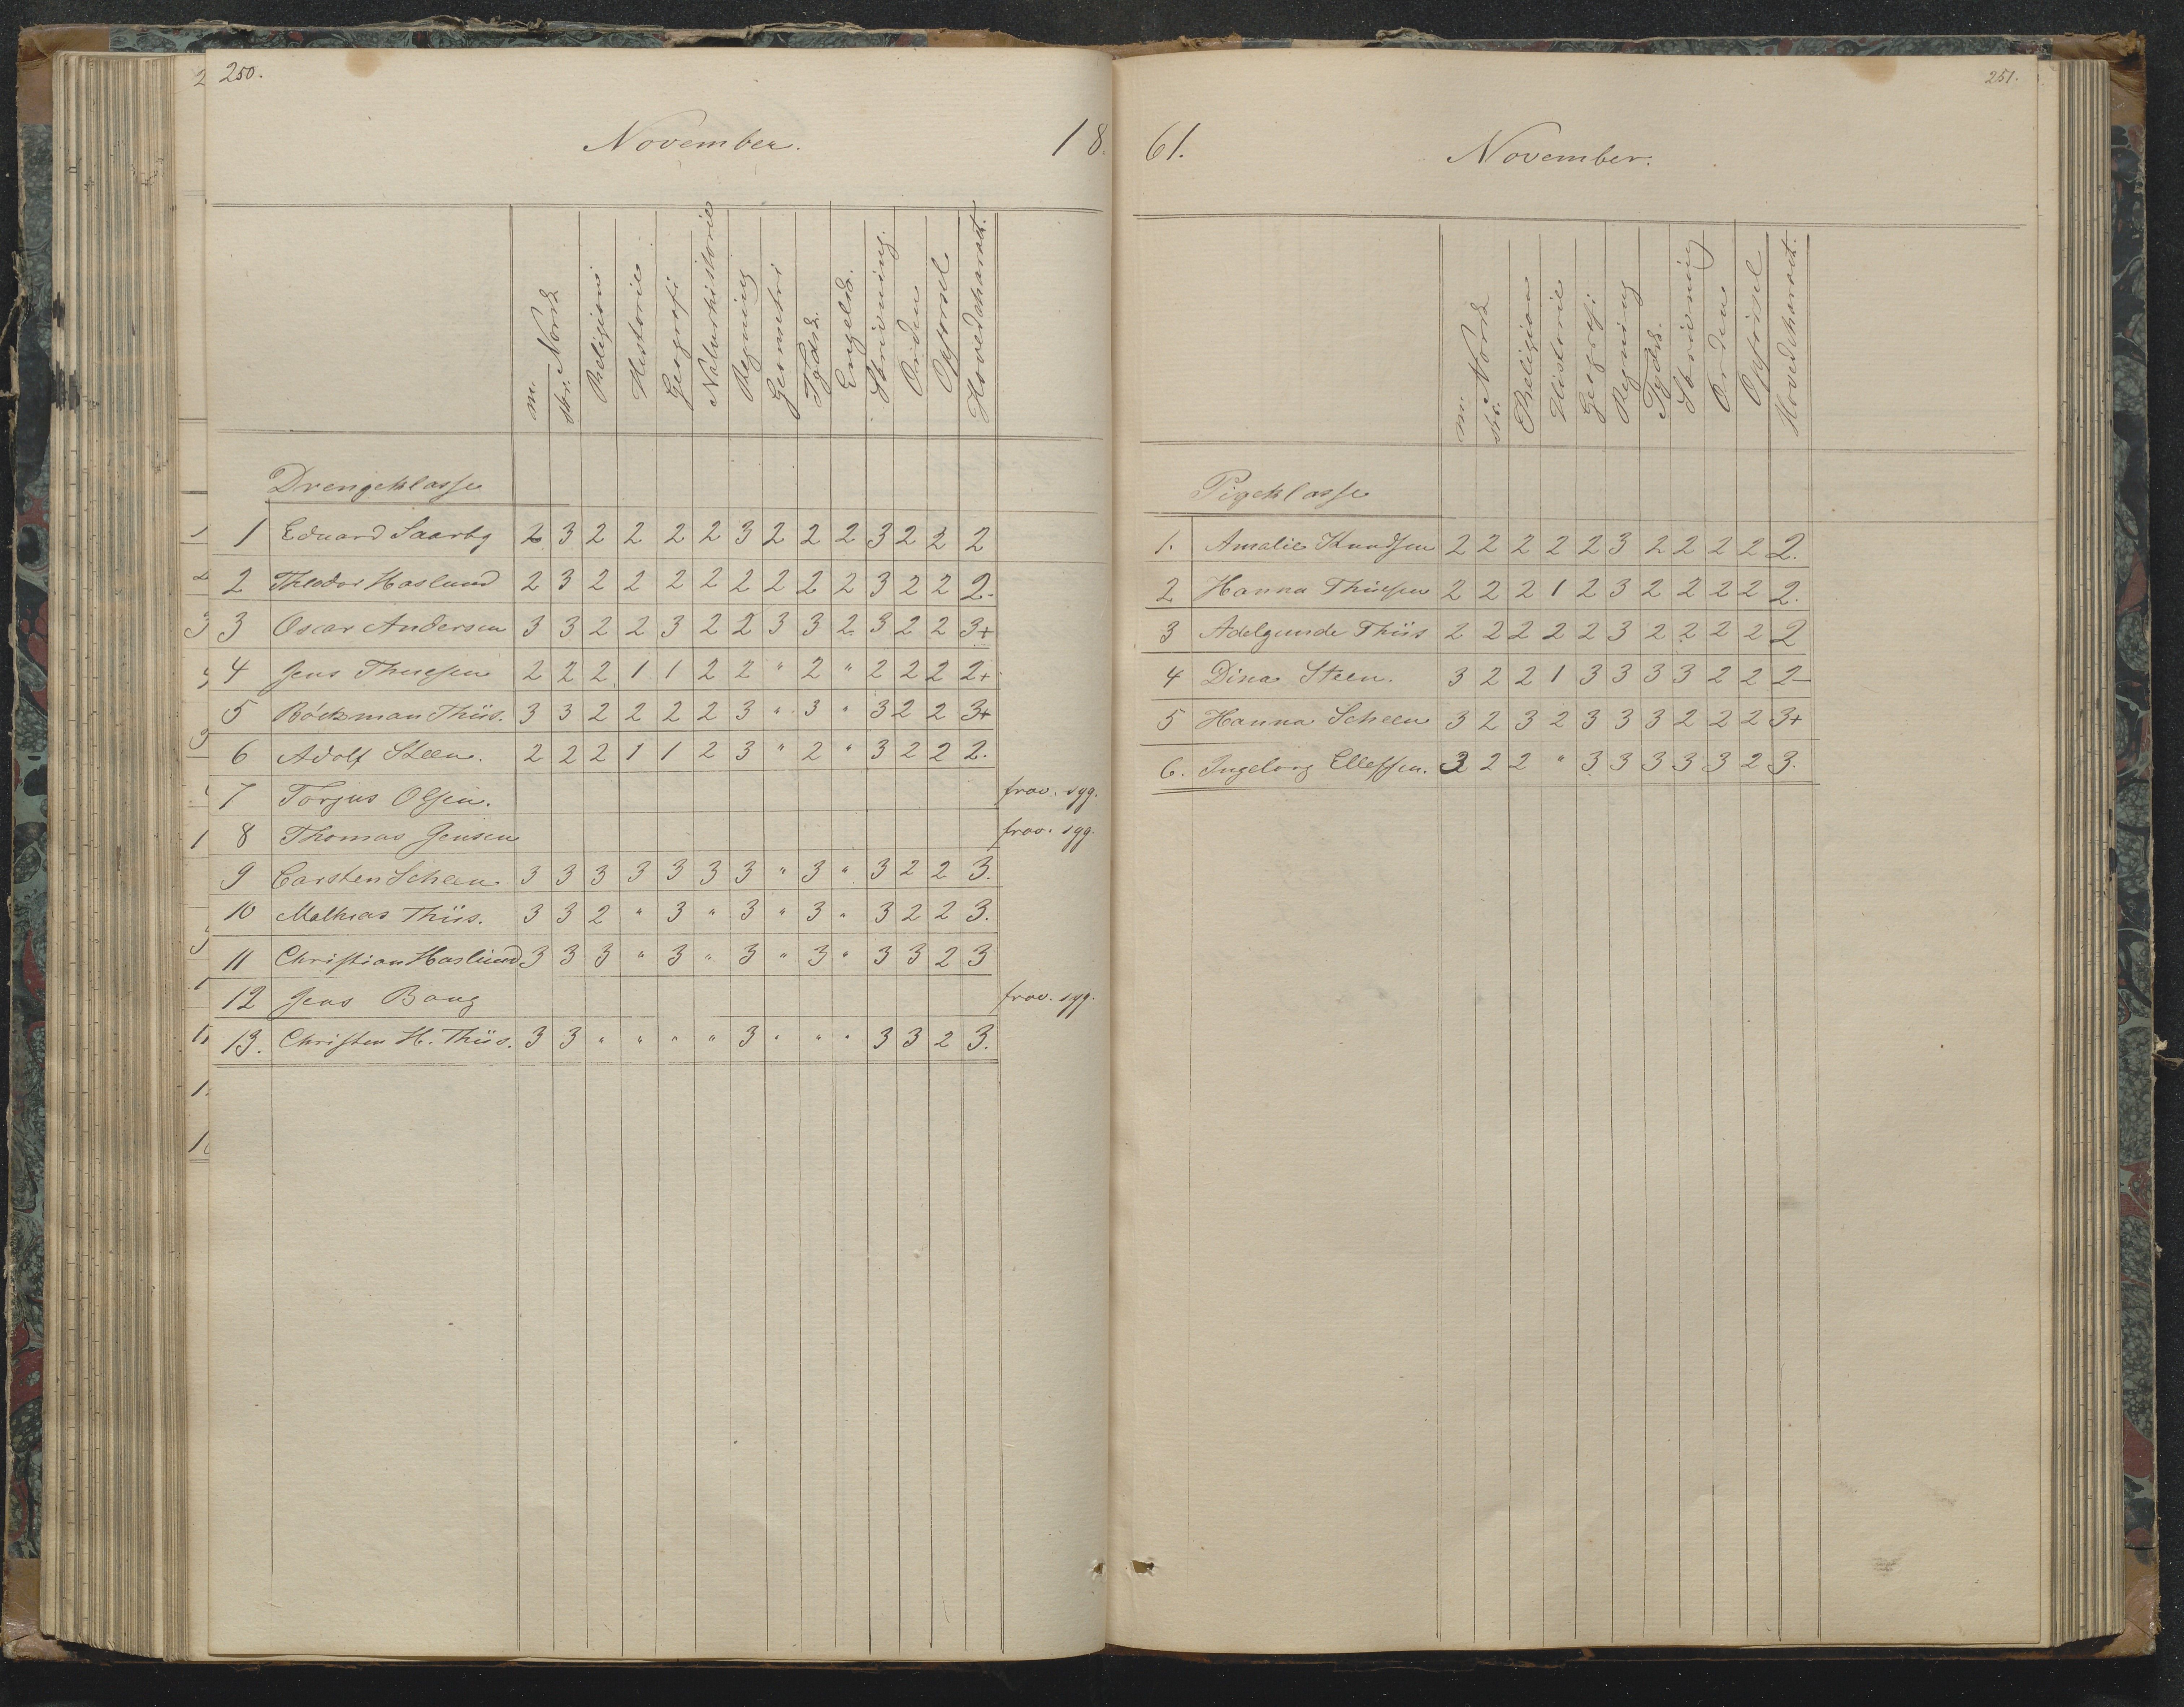 250.
November.
18
m. skr. Norsk Religion Historie Geografi Naturhistorie Regning Geometri Tydsk. Engelsk. Skrivning. Orden Opførsel Hovedcharact.
Drengeklasse
1 Eduard Saarby 2 3 2 2 2 2 3 2 2 2 3 2 2 2
2 Theodor Haslund 2 3 2 2 2 2 2 2 2 2 3 2 2 2-
3 Oscar Andersen 3 3 2 2 3 2 2 3 3 2 3 2 2 3+
4 Jens Thuesen 2 2 2 1 1 2 2 " 2 " 2 2 2 2+
5 Böckman Thiis. 3 3 2 2 2 2 3 " 3 " 3 2 2 3+
6 Adolf Steen. 2 2 2 1 1 2 3 " 2 " 3 2 2 2.
7 Torjus Olsen. frav. syg.
8 Thomas Jensen frav. syg.
9 Carsten Scheen 3 3 3 3 3 3 3 " 3 " 3 2 2 3.
10 Mathias Thiis. 3 3 2 " 3 " 3 " 3 " 3 2 2 3.
11 Christian Haslund 3 3 3 " 3 " 3 " 3 " 3 3 2 3
12 Jens Bang frav. syg.
13. Christen H. Thiis. 3 3 " " " " 3 " " " 3 3 2 3.
251.
61.
November.
m. skr. Norsk Religion Historie Geografi Regning Tydsk. Skrivning Orden Opførsel Hovedcharact.
Pigeklasse
1. Amalie Knudsen 2 2 2 2 2 3 2 2 2 2 2.
2 Hanna Thuesen 2 2 2 1 2 3 2 2 2 2 2.
3 Adelgunde Thiis 2 2 2 2 2 3 2 2 2 2 2
4 Dina Steen. 3 2 2 1 3 3 3 3 2 2 2-
5 Hanna Scheen 3 2 3 2 3 3 3 2 2 2 3+
6. Ingeborg Ellefsen. 3 2 2 " 3 3 3 3 3 2 3.